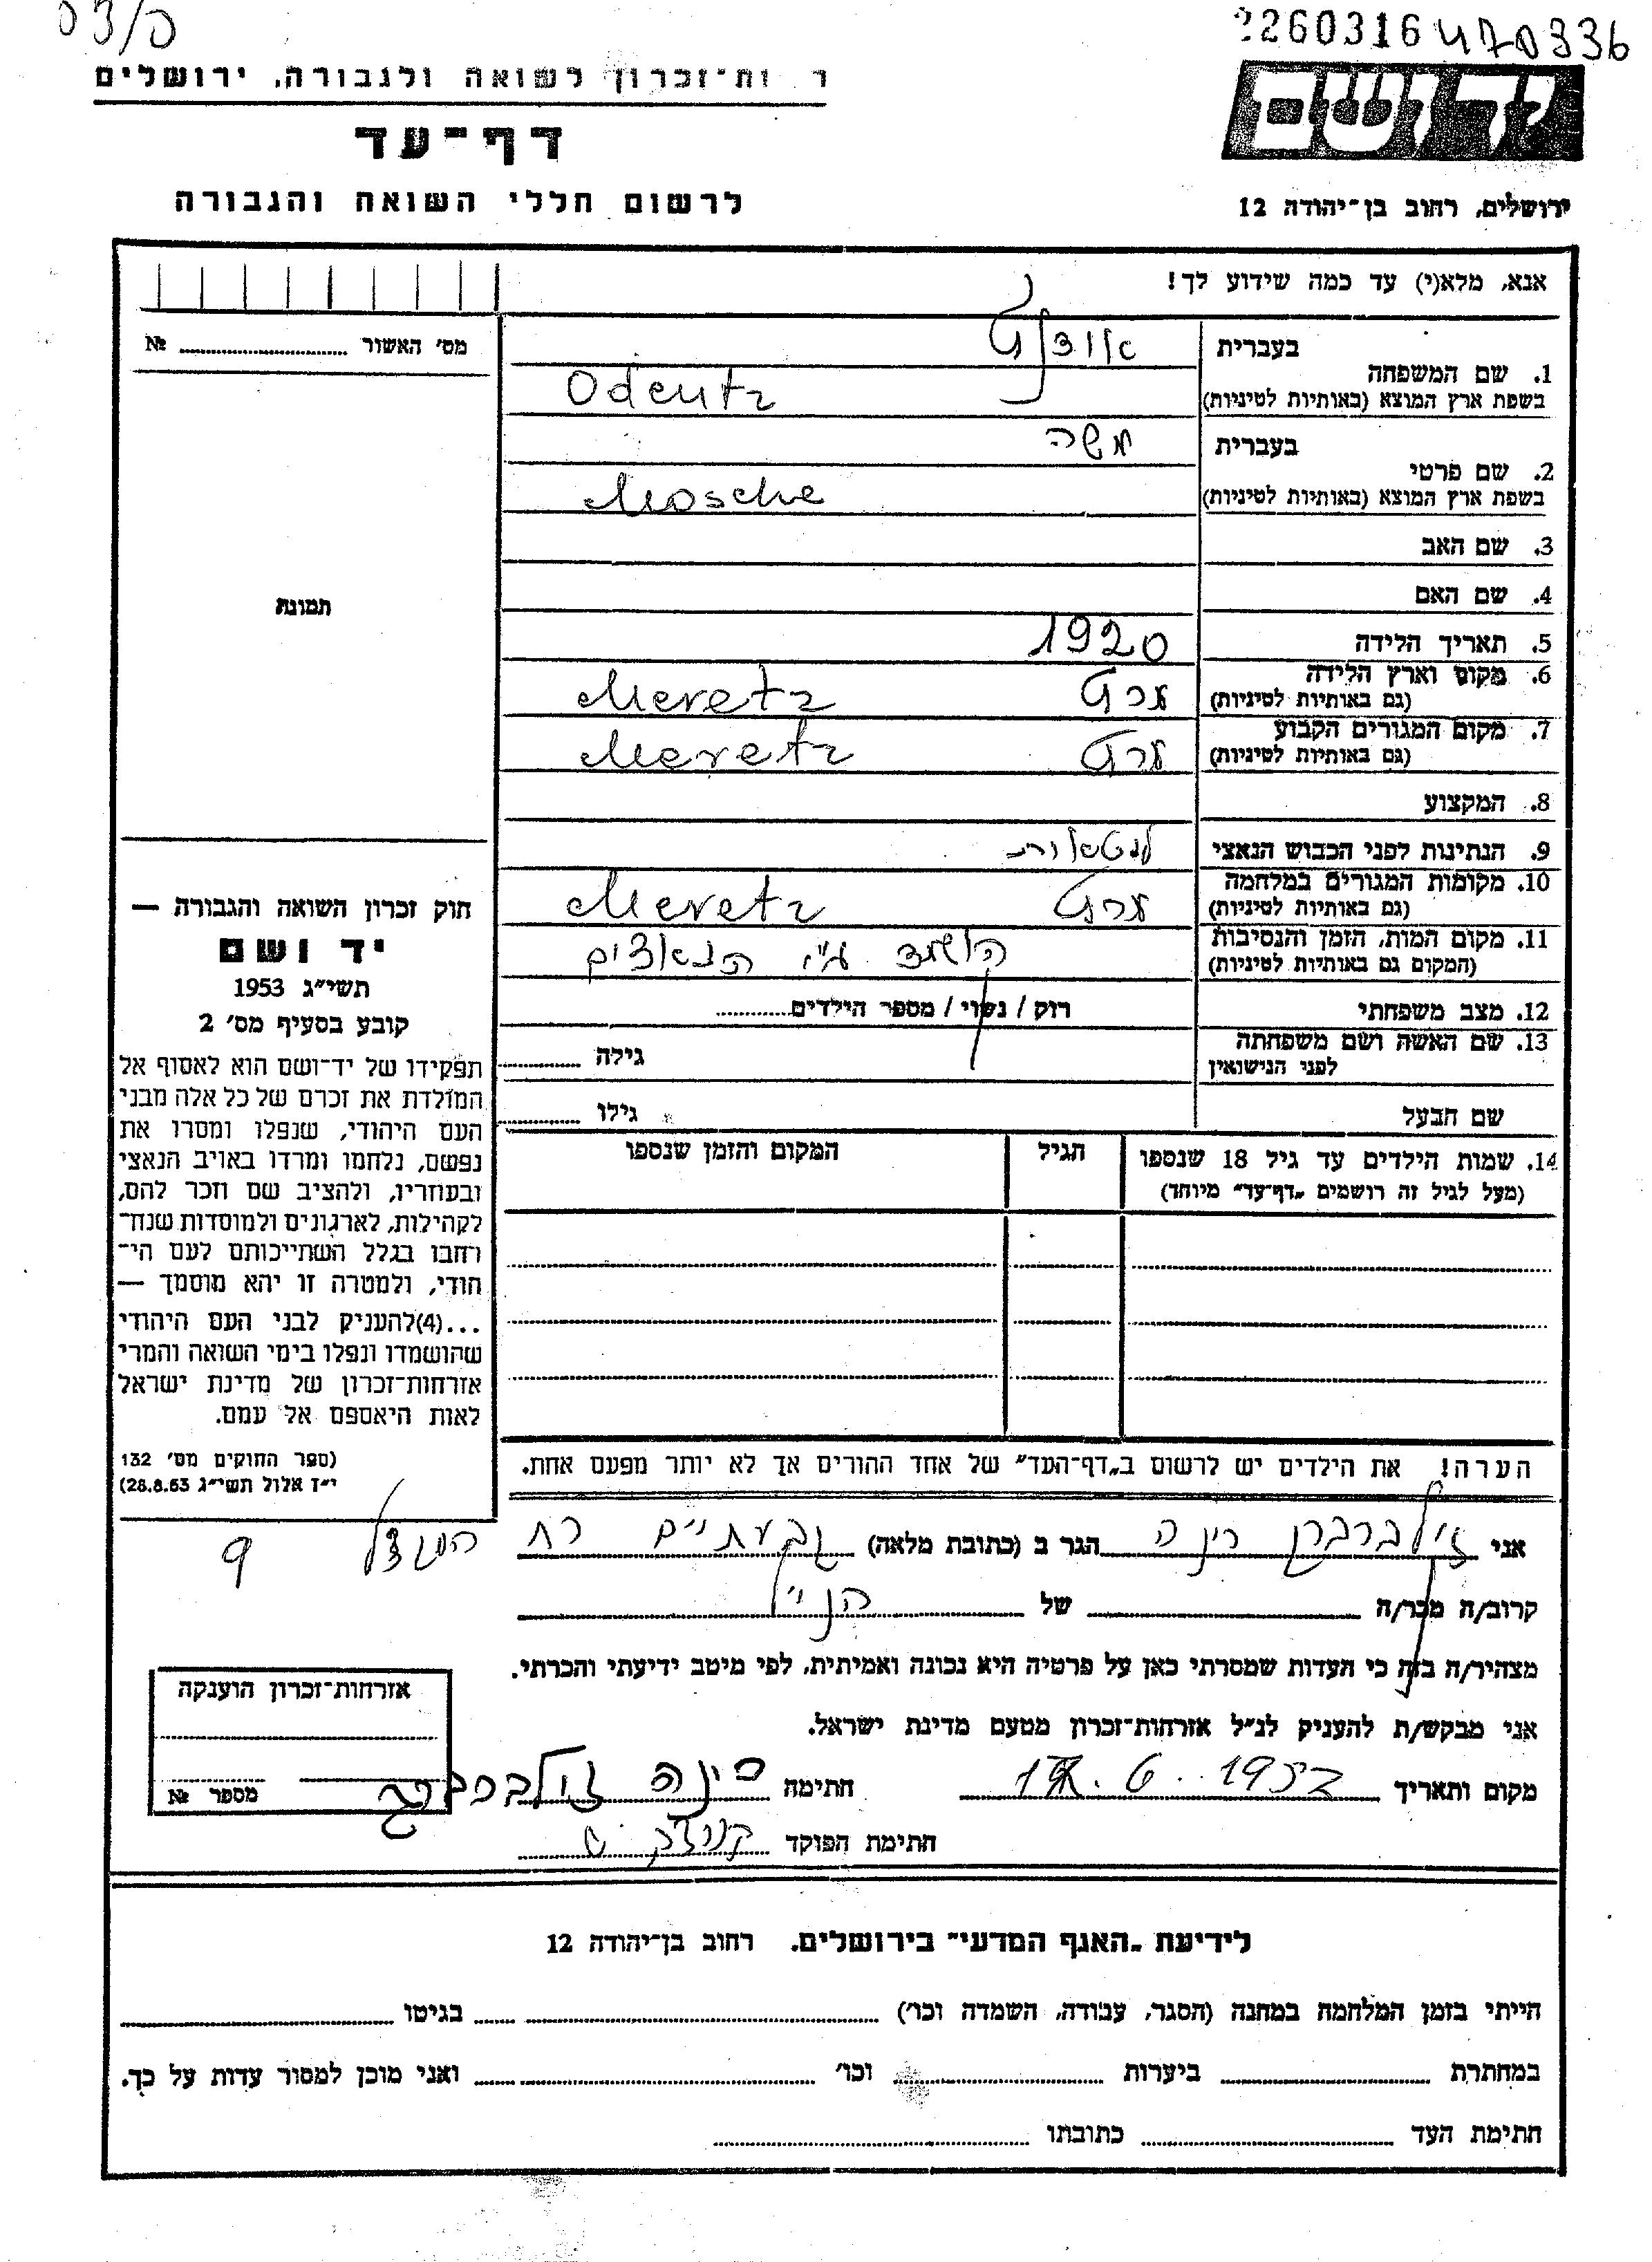 03/5
2260316 470336
ר ות־זכרון לשואה ולגבורה, ירושלים
דף־עד
לרשום חללי השואה והגבורה
ירושלים, רחוב בן־יהודה 12
אנא, מלא(י) עד כמה שידוע לך!
מס׳ האשור № 
1. שם המשפחה בעברית
בשפת ארץ המוצא (באותיות לטיניות) Odentz
2. שם פרטי בעברית משה
בשפת ארץ המוצא (באותיות לטיניות) Mosche
3. שם האב
4. שם האם
תמונה
5. תאריך הלידה 1920
6. מקום וארץ הלידה
(גם באותיות לטיניות) מרץ Meretz
7. מקום המגורים הקבוע
(גם באותיות לטיניות) מרץ Meretz
8. המקצוע
9. הנתינות לפני הכבוש הנאצי ליטאית
10. מקומות המגורים במלחמה
(גם באותיות לטיניות) מרץ Meretz
11. מקום המות, הזמן והנסיבות
(המקום גם באותיות לטיניות) הושמד ע״י הנאצים
12. מצב משפחתי רוק / נשוי / מספר הילדים
13. שם האשה ושם משפחתה
לפני הנישואין גילה
שם הבעל גילו
14. שמות הילדים עד גיל 18 שנספו
(מעל לגיל זה רושמים „דף־עד״ מיוחד)
הגיל
המקום והזמן שנספו
חוק זכרון השואה והגבורה —
יד ושם
תשי״ג 1953
קובע בסעיף מס׳ 2
תפקידו של יד־ושם הוא לאסוף אל
המולדת את זכרם של כל אלה מבני
העם היהודי, שנפלו ומסרו את
נפשם, נלחמו ומרדו באויב הנאצי
ובעוזריו, ולהציב שם וזכר להם,
לקהילות, לארגונים ולמוסדות שנח־
רחבו בגלל השתייכותם לעם הי־
הודי, ולמטרה זו יהא מוסמך —
...(4)להעניק לבני העם היהודי
שהושמדו ונפלו בימי השואה והמרי
אזרחות־זכרון של מדינת ישראל
לאות היאספם אל עמם.
(ספר החוקים מס׳ 132
י״ז אלול תשי״ג 28.8.53)
הערה! את הילדים יש לרשום ב„דף־העד״ של אחד ההורים אך לא יותר מפעם אחת.
אני זילברברג רינה הגר ב (כתובת מלאה) גבעתיים רח הרצל 9
קרוב/ה מכר/ה של הנ״ל
מצהיר/ה בזה כי העדות שמסרתי כאן על פרטיה היא נכונה ואמיתית, לפי מיטב ידיעתי והכרתי.
אני מבקש/ת להעניק לנ״ל אזרחות־זכרון מטעם מדינת ישראל.
מקום ותאריך חתימה רינה זילברברג
חתימת הפוקד
אזרחות־זכרון הוענקה
מספר №
לידיעת „האגף המדעי״ בירושלים, רחוב בן־יהודה 12
הייתי בזמן המלחמה במחנה (הסגר, עבודה, השמדה וכו׳) בגיטו
במחתרת ביערות וכו׳ ואני מוכן למסור עדות על כך.
חתימת העד כתובתו